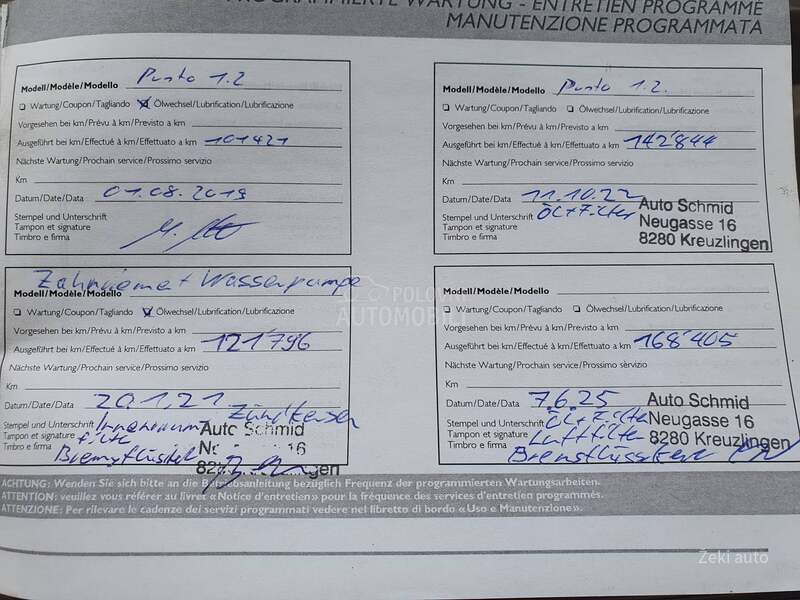 PROGRAMMIERTE WARTUNG - ENTRETIEN PROGRAMMÉ
MANUTENZIONE PROGRAMMATA
Modell/Modèle/Modello Punto 1.2
Wartung/Coupon/Tagliando Ölwechsel/Lubrification/Lubrificazione
Vorgesehen bei km/Prévu à km/Previsto a km
Ausgeführt bei km/Effectué à km/Effettuato a km 101421
Nächste Wartung/Prochain service/Prossimo servizio
Km
Datum/Date/Data 01.08.2019
Stempel und Unterschrift
Tampon et signature
Timbro e firma
Modell/Modèle/Modello Punto 1.2
Wartung/Coupon/Tagliando Ölwechsel/Lubrification/Lubrificazione
Vorgesehen bei km/Prévu à km/Previsto a km
Ausgeführt bei km/Effectué à km/Effettuato a km 142'844
Nächste Wartung/Prochain service/Prossimo servizio
Km
Datum/Date/Data 11.10.22
Stempel und Unterschrift Öl+Filter
Tampon et signature
Timbro e firma
Auto Schmid
Neugasse 16
8280 Kreuzlingen
Zahnrieme + Wasserpumpe
Modell/Modèle/Modello
Wartung/Coupon/Tagliando Ölwechsel/Lubrification/Lubrificazione
Vorgesehen bei km/Prévu à km/Previsto a km
Ausgeführt bei km/Effectué à km/Effettuato a km 121'796
Nächste Wartung/Prochain service/Prossimo servizio
Km
Datum/Date/Data 20.1.21 Zündkerzen
Stempel und Unterschrift Innenraum
Tampon et signature filte
Timbro e firma
Auto Schmid
16
Modell/Modèle/Modello
Wartung/Coupon/Tagliando Ölwechsel/Lubrification/Lubrificazione
Vorgesehen bei km/Prévu à km/Previsto a km
Ausgeführt bei km/Effectué à km/Effettuato a km 168'405
Nächste Wartung/Prochain service/Prossimo servizio
Km
Datum/Date/Data 7.6.25
Stempel und Unterschrift Öl+Filter
Tampon et signature Luftfilter
Timbro e firma
Auto Schmid
Neugasse 16
8280 Kreuzlingen
POLOVNI
AUTOMOBILI
ACHTUNG: Wenden Sie sich bitte an die Betriebsanleitung bezüglich Frequenz der programmierten Wartungsarbeiten.
ATTENTION: veuillez vous référer au livret «Notice d'entretien» pour la fréquence des services d'entretien programmés.
ATTENZIONE: Per rilevare le cadenze dei servizi programmati vedere nel libretto di bordo «Uso e Manutenzione».
Žeki auto